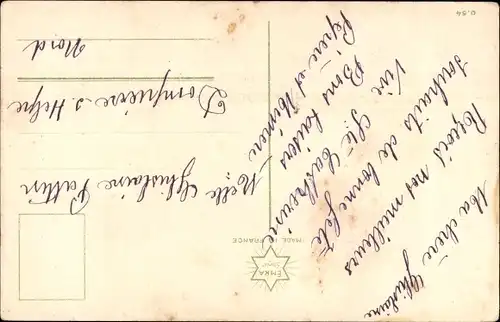 Ma chère Ghislaine
Reçois nos meilleurs
souhaits de bonne fête
Vive Ste Catherine
Bons baisers
Pépère et Mémère
Melle Ghislaine Pattin
Dompierre s Helpe
Nord
EMKA
MADE IN FRANCE
0.54